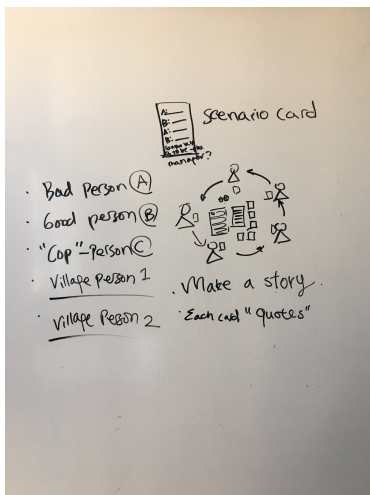 A: B: A: B:
scenario card
manager?
Bad person A
Good person B
"Cop"-Person C
Village person 1
Village Person 2
Make a story.
Each card "quotes"